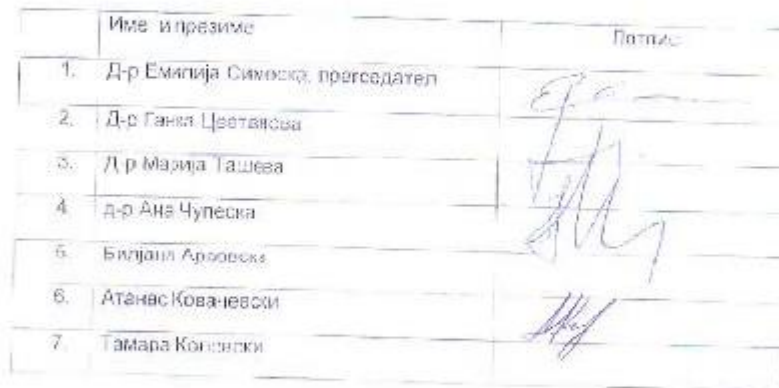 Име и презиме Потпис
1. Д-р Емилија Симоска, претседател
2. Д-р Ганка Цветанова
3. Д-р Марија Ташева
4 д-р Ана Чупеска
5. Билјана
6. Атанас Ковачевски
7. Тамара